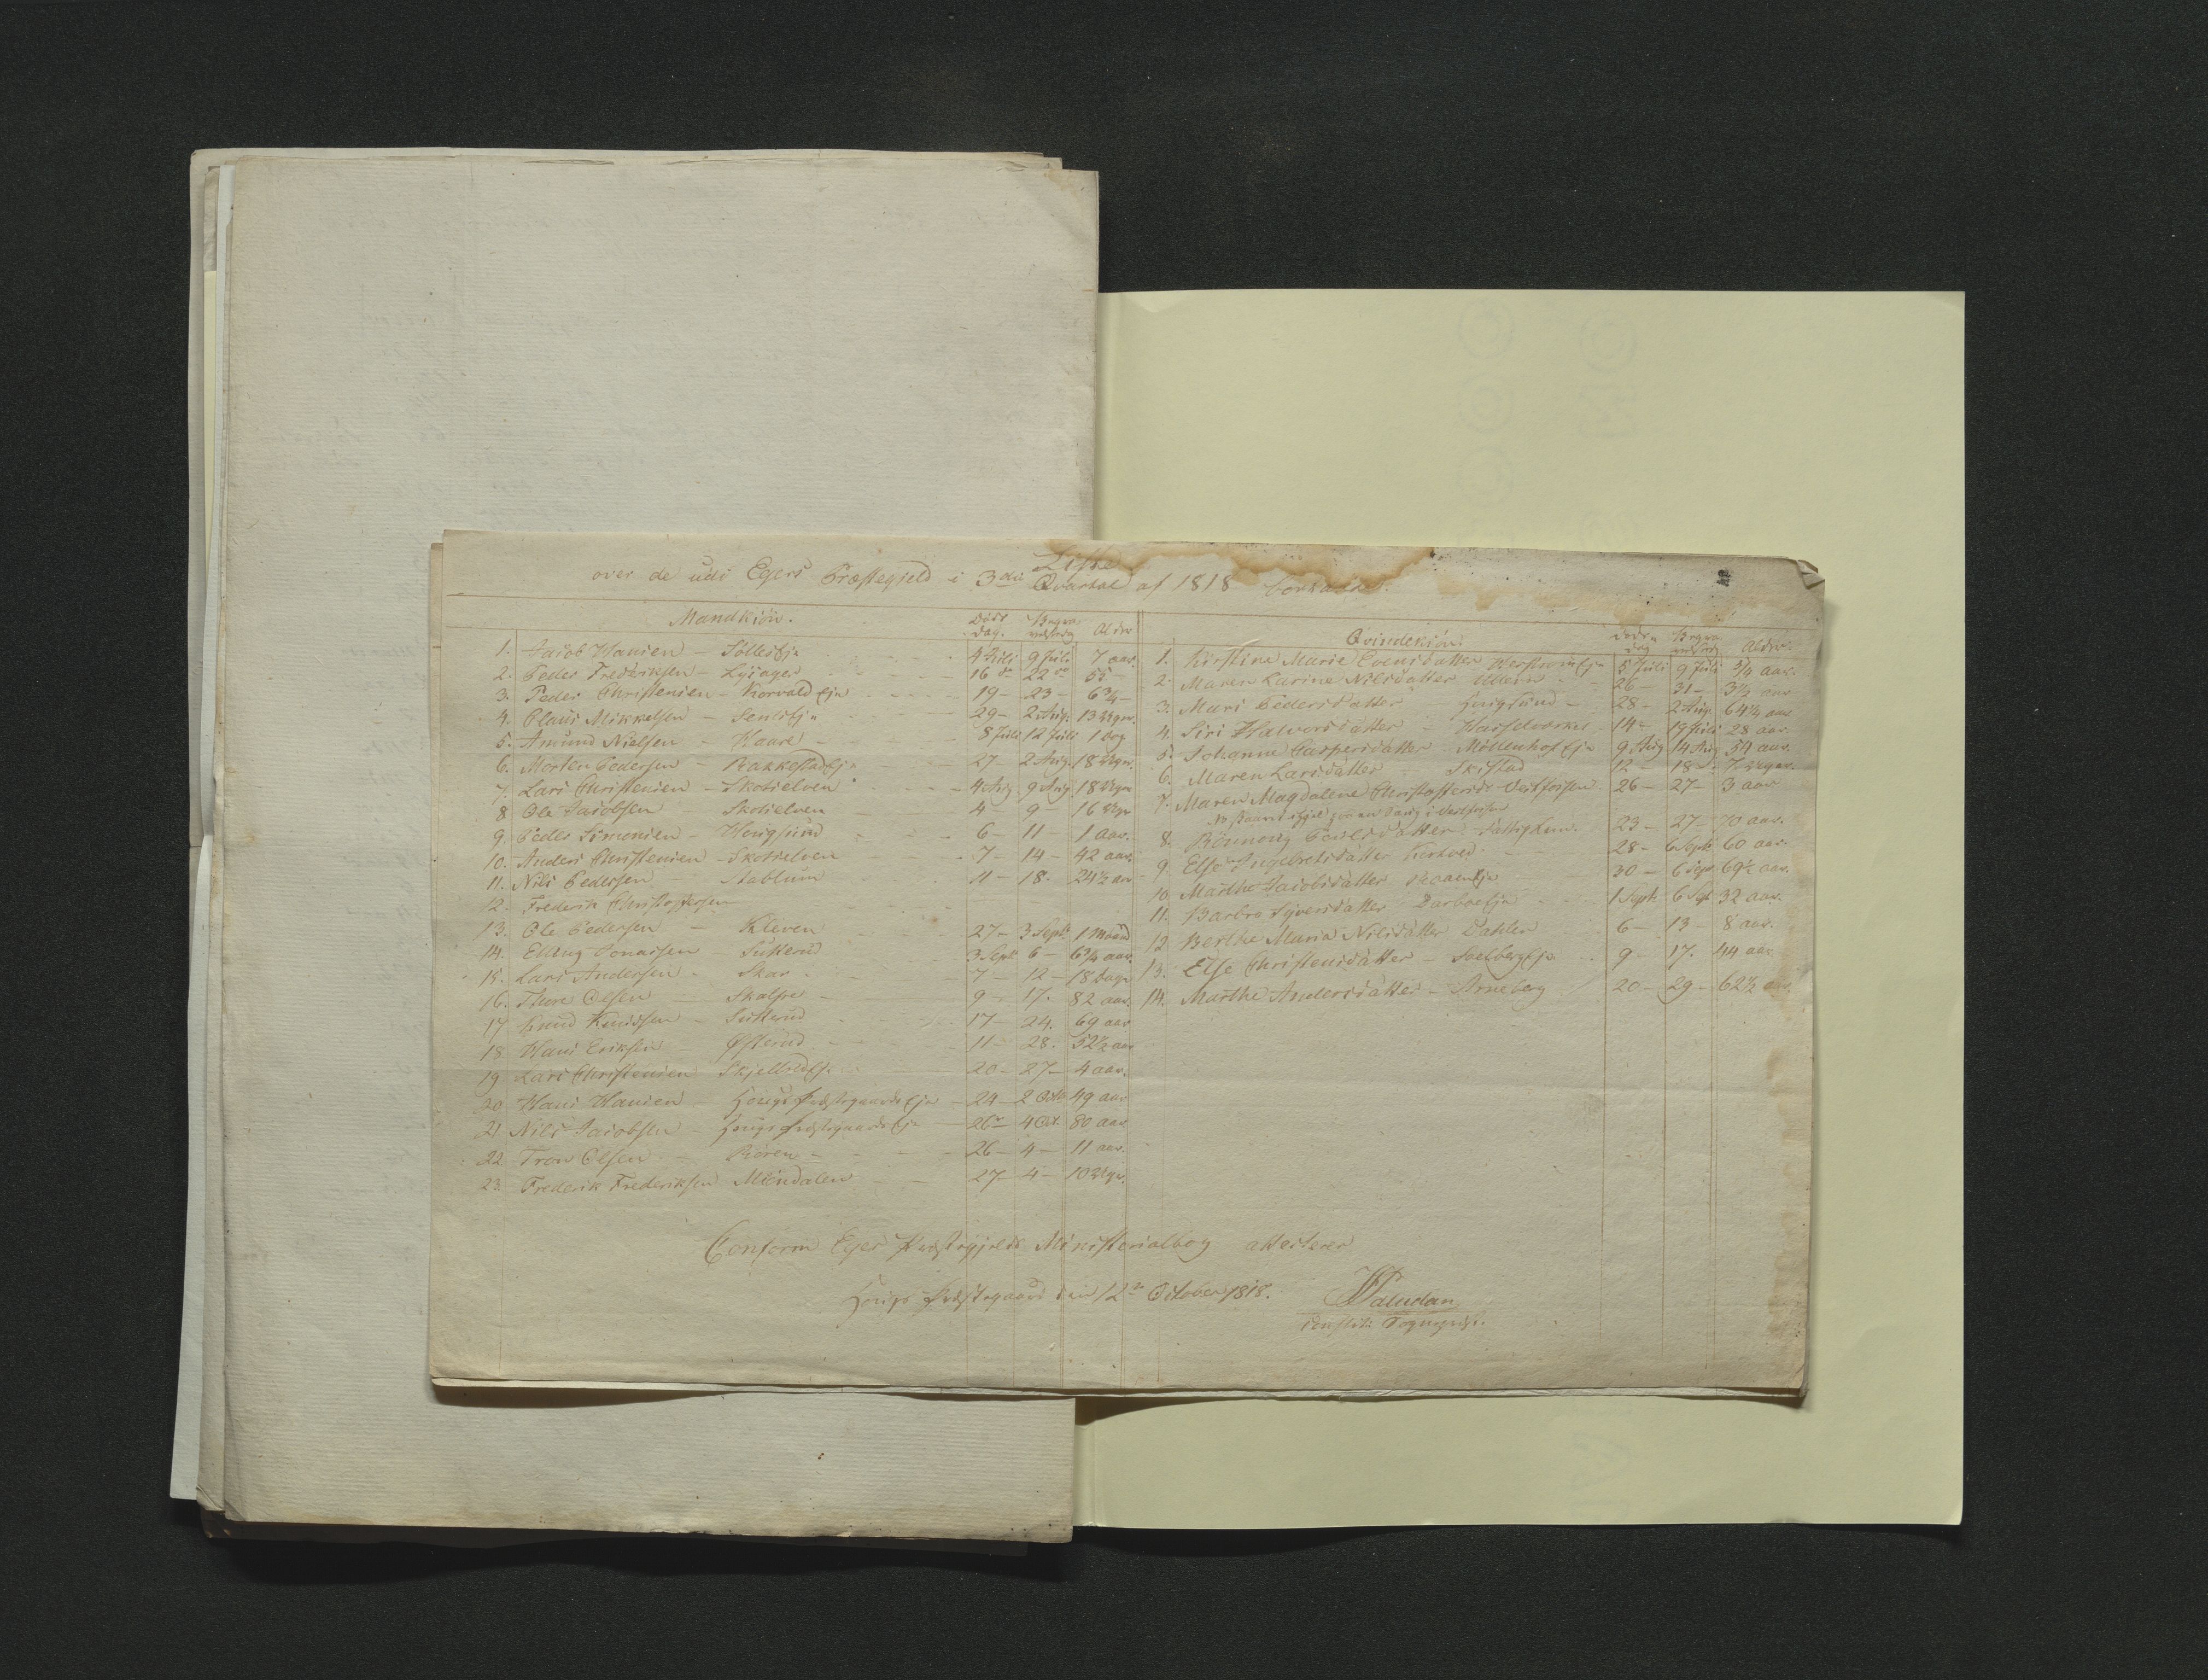 Liste
over de udi Egers Præstegjeld i 3die Qvartal af 1818 bortdøde.
Mandkiön.
Døds dag. Begra velsesdag Alder
1. Jacob Hansen – Sölleseje 4 Juli 9 Juli 7 aar.
2. Peder Fredriksen – Lysager 16 do 22 do 55 –
3. Peder Christensen – Korvald Eje 19 – 23 – 6 3/4 –
4. Claus Mikkelsen – 29 – 2 Aug. 13 Uger.
5. Amund Nielsen – Kaare 8 Juli 12 Juli 1 Dag
6. Morten Pedersen – Rakkestad Eje 27 – 2 Aug. 18 Uger.
7. Lars Christensen – Skotselven 4 Aug 9 Aug 18 Uger
8 Ole Jacobsen Skotselven 4 – 9 – 16 Uger
9. Peder Simensen – Hougsund 6 – 11 – 1 aar.
10. Anders Christensen – Skotselven 7 – 14 – 42 aar.
11. Nils Pedersen – Stablum 11 – 18. 24 1/2 aar
12. Frederik Christophersen
13. Ole Pedersen – Kleven 27 – 3 Sept. 1 Maaned
14. Elling Jonassen – Sutterud 3 Sept 6 – 6 3/4 aar.
15. Lars Andersen – Skar 7 – 12 – 18 Dage
16. Thore Olsen – Skalstad 9 – 17. 82 aar.
17 Knud Knudsen – Sutterud 17 – 24. 69 aar
18 Hans Eriksen – Østerud 11 – 28. 52 1/2 aar
19 Lars Christensen Skjelbred Eje 20 – 27 – 4 aar.
20 Hans Hansen – Hougs Præstegaards Eje – 24 – 2 Octb 49 aar
21 Nils Jacobsen – Hougs Præstegaards Eje 26 – 4 Oct. 80 aar
22 Tron Olsen – Røren – 26 – 4 – 11 aar.
23. Frederik Frederiksen Miöndalen 27 – 4 – 10 Uger.
Qvindekiön.
Døds dag Begra velsesdag Alder.
1. Kirstine Marie Evensdatter Eje 5 Juli 9 Juli 3/4 aar.
2. Maren Karine Nilsdatter Ullern 26 – 31 – 3 1/2 aar
3. Mari Pedersdatter – Hougsund – 28 – 2 Aug. 64 1/4 aar
4. Siri Halvorsdatter – Hasselverket 14 – 19 Juli 28 aar.
5. Johanne Caspersdatter – Möllenhof Eje 9 Aug 14 Aug 3/4 aar.
6. Maren Larsdatter – Skistad 12 – 18 – 7 Uger.
7. Maren Magdalene Christophersd. Vestfossen 26 – 27 – 3 aar
8. Rönnoug Poulsdatter – Fattiglem. 23 – 27 – 70 aar.
9. Else Ingebretsdatter 28 – 6 Sept. 60 aar.
10. Marthe Jacobsdatter Eje 30 – 6 Sept 69 1/2 aar.
11. Barbro Syversdatter Darbo Eje 1 Sept 6 Sept 32 aar.
12 Berthe Maria Nilsdatter Dahlen 6 – 13 – 8 aar.
13. Else Christensdatter – Soelberg Eje 9 – 17. 44 aar
14. Marthe Andersdatter – Arneberg 20 – 29 – 62 1/2 aar.
Conform Eger Præstegjelds Ministerialbog attesterer
Hougs Præstegaard den 12te October 1818.
Paludan